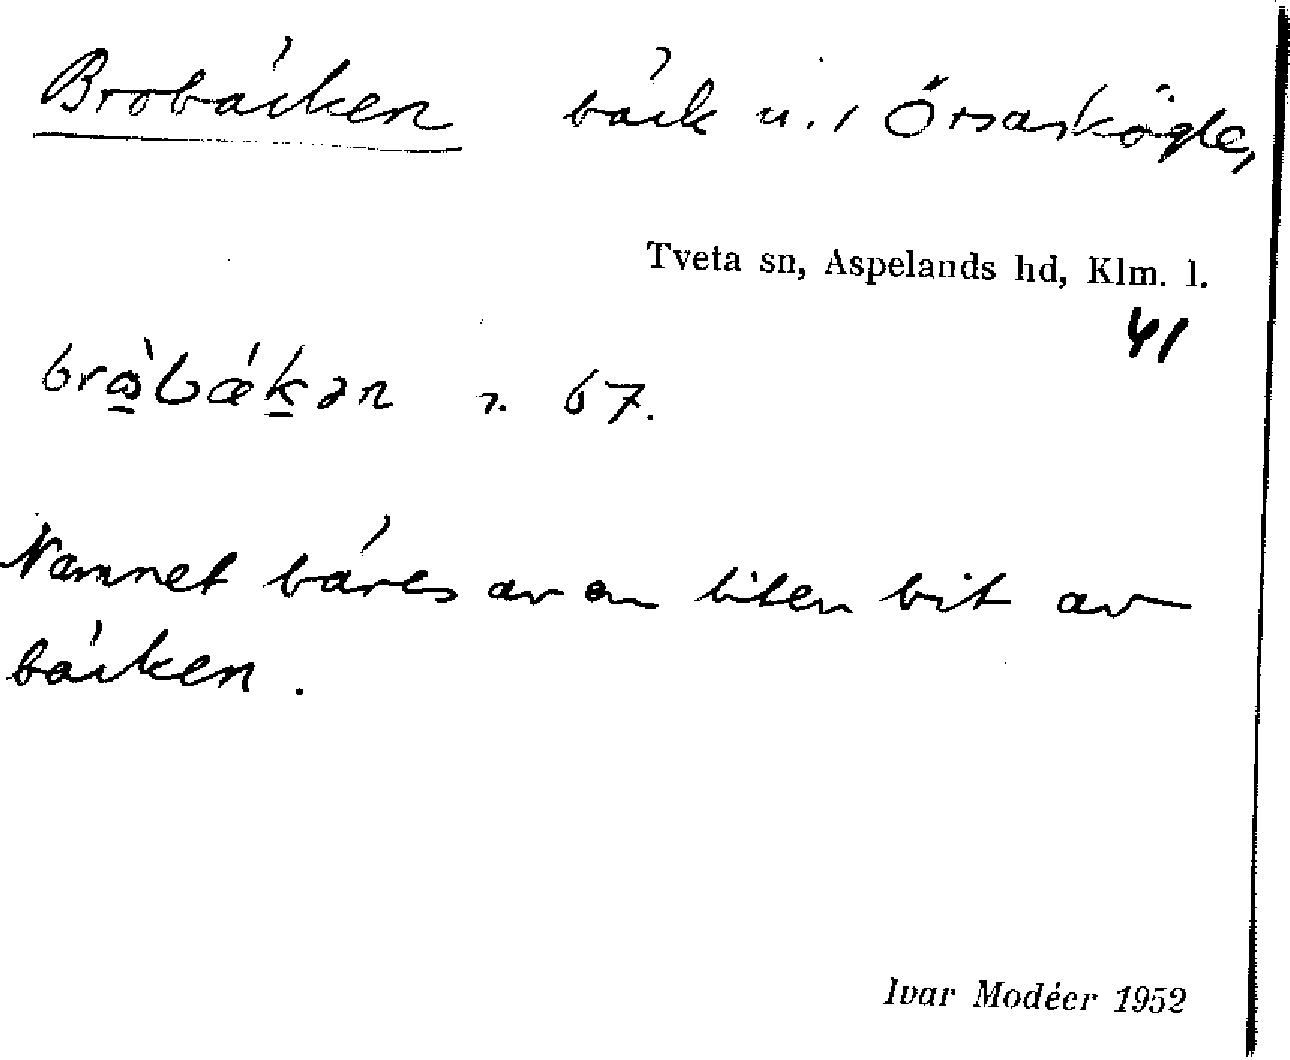 Brobäcken bäck u. / Örsaskögle,
Tveta sn, Aspelands hd, Klm. l.
41
brɷ̀bǽk̲ən r. 67.
Namnet bäres av en liten bit av
bäcken.
Ivar Modéer 1952